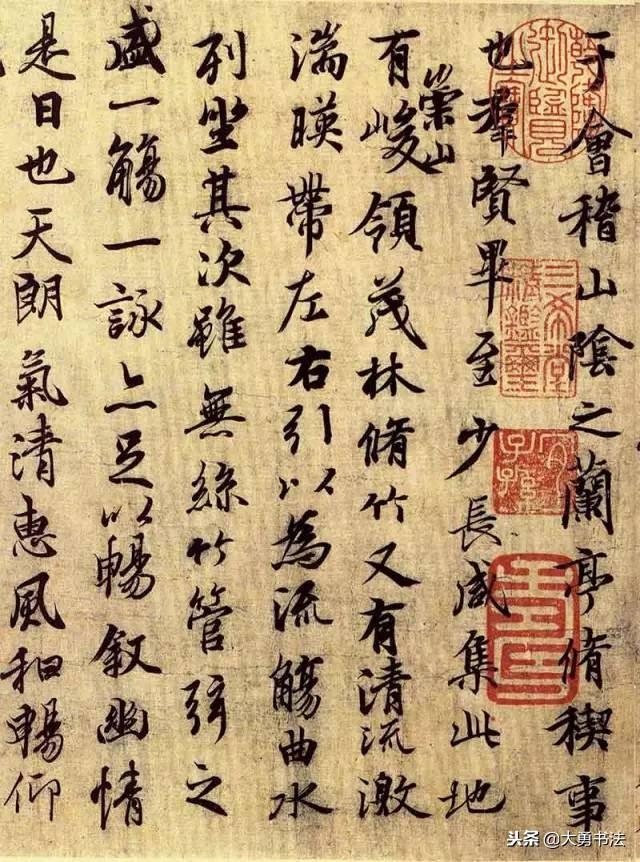 于會稽山陰之蘭亭脩稧事
也羣賢畢至少長咸集此地
有崇山峻領茂林脩竹又有清流激
湍暎帶左右引以為流觴曲水
列坐其次雖無絲竹管弦之
盛一觴一詠亦足以暢敘幽情
是日也天朗氣清惠風和暢仰
三希堂精鑑璽
宜子孫
头条 @大勇书法